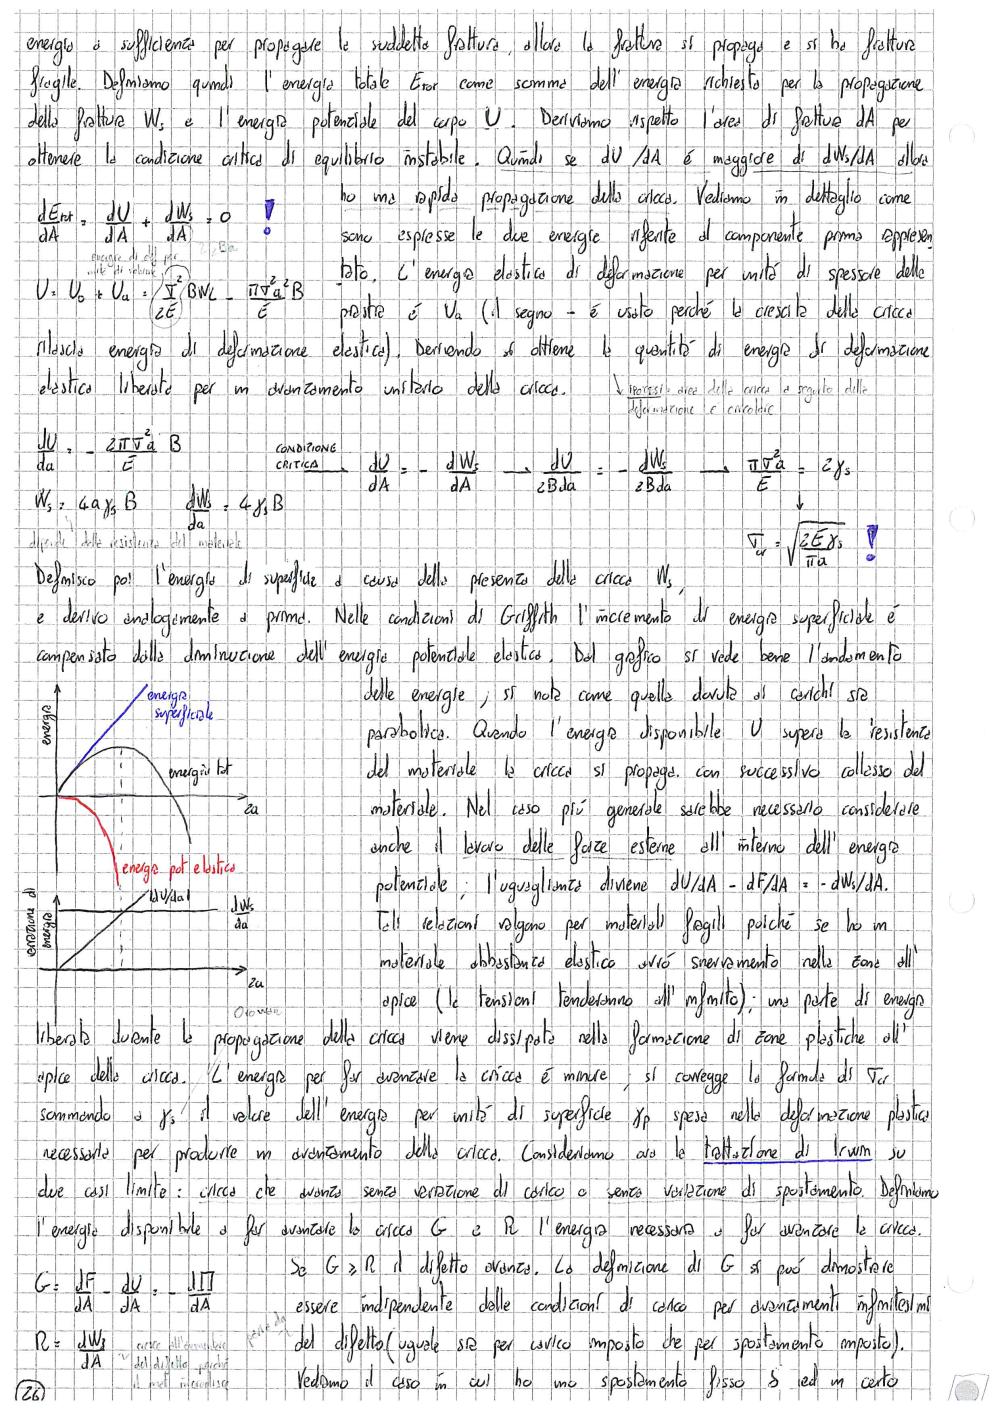 energia è sufficiente per propagare la suddetta frattura, allora la frattura si propaga e si ha frattura
fragile. Definiamo quindi l'energia totale Etot come somma dell'energia richiesta per la propagazione
della frattura Ws e l'energia potenziale del corpo U. Deriviamo rispetto l'area di frattura dA per
ottenere la condizione critica di equilibrio instabile. Quindi se dU/dA é maggiore di dWs/dA allora
ho una rapida propagazione della cricca. Vediamo in dettaglio come
dEtot/dA = dU/dA + dWs/dA = 0 !
sono espresse le due energie riferite al componente prima rappresen
energia di def per
unità di volume
tato. L'energia elastica di deformazione per unità di spessore della
U = U0 + Ua = (σ²/2E) BWL - πσ²a²B/E
piastra é Ua (il segno - é usato perché la crescita della cricca
rilascia energia di deformazione elastica). Derivando si ottiene la quantità di energia di deformazione
elastica liberata per un avanzamento unitario della cricca.
ipotesi: area della cricca a seguito della
deformazione é circolare
dU/da = - 2πσ²a/E B
CONDIZIONE CRITICA → dU/dA = - dWs/dA → dU/2Bda = - dWs/2Bda → πσ²a/E = 2γs
Ws = 4aγsB dWs/da = 4γsB
dipende dalla resistenza del materiale
σcr = √(2Eγs/πa) !
Definisco poi l'energia di superficie a causa della presenza della cricca Ws,
e derivo analogamente a prima. Nelle condizioni di Griffith l'incremento di energia superficiale é
compensato dalla diminuzione dell'energia potenziale elastica. Dal grafico si vede bene l'andamento
delle energie, si nota come quella dovuta ai carichi sia
parabolica. Quando l'energia disponibile U supera la resistenza
del materiale la cricca si propaga con successivo collasso del
materiale. Nel caso più generale sarebbe necessario considerare
anche il lavoro delle forze esterne all'interno dell'energia
potenziale; l'uguaglianza diviene dU/dA - dF/dA = -dWs/dA.
Tali relazioni valgono per materiali fragili poiché se ho un
materiale abbastanza elastico avrò snervamento nella zona all'
apice (le tensioni tenderanno all'infinito); una parte di energia
energia
energia
superficiale
energia tot
2a
energia pot elastica
energia
|dU/da|
dWs/da
2a
Orowan
liberata durante la propagazione della cricca viene dissipata nella formazione di zone plastiche all'
apice della cricca. L'energia per far avanzare la cricca é minore, si corregge la formula di σcr
sommando a γs il valore dell'energia per unità di superficie γp spesa nella deformazione plastica
necessaria per produrre un avanzamento della cricca. Consideriamo ora la trattazione di Irwin su
due casi limite: cricca che avanza senza variazione di carico o senza variazione di spostamento. Definiamo
l'energia disponibile a far avanzare la cricca G e R l'energia necessaria a far avanzare la cricca.
Se G ≥ R il difetto avanza. La definizione di G si può dimostrare
G = dF/dA - dU/dA = - dΠ/dA
essere indipendente dalle condizioni di carico per avanzamenti infinitesimi
R = dWs/dA
del difetto (uguale sia per carico imposto che per spostamento imposto).
del difetto perché
Vediamo il caso in cui ho uno spostamento fisso δ ed un certo
26